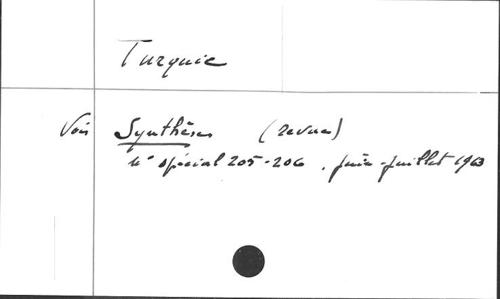 Turquie
Voir Synthèses (revue)
N° spécial 205-206. juin-juillet 1963